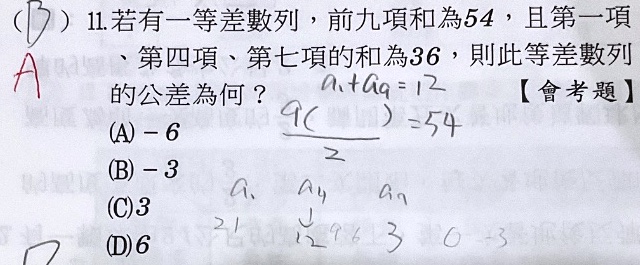 (D) 11.若有一等差數列，前九項和為54，且第一項
A 、第四項、第七項的和為36，則此等差數列
的公差為何？ a₁+a₉=12 【會考題】
(A)－6 9( )/2 =54
(B)－3
(C)3 a₁ a₄
(D)6 21 12 9 6 3 0 -3